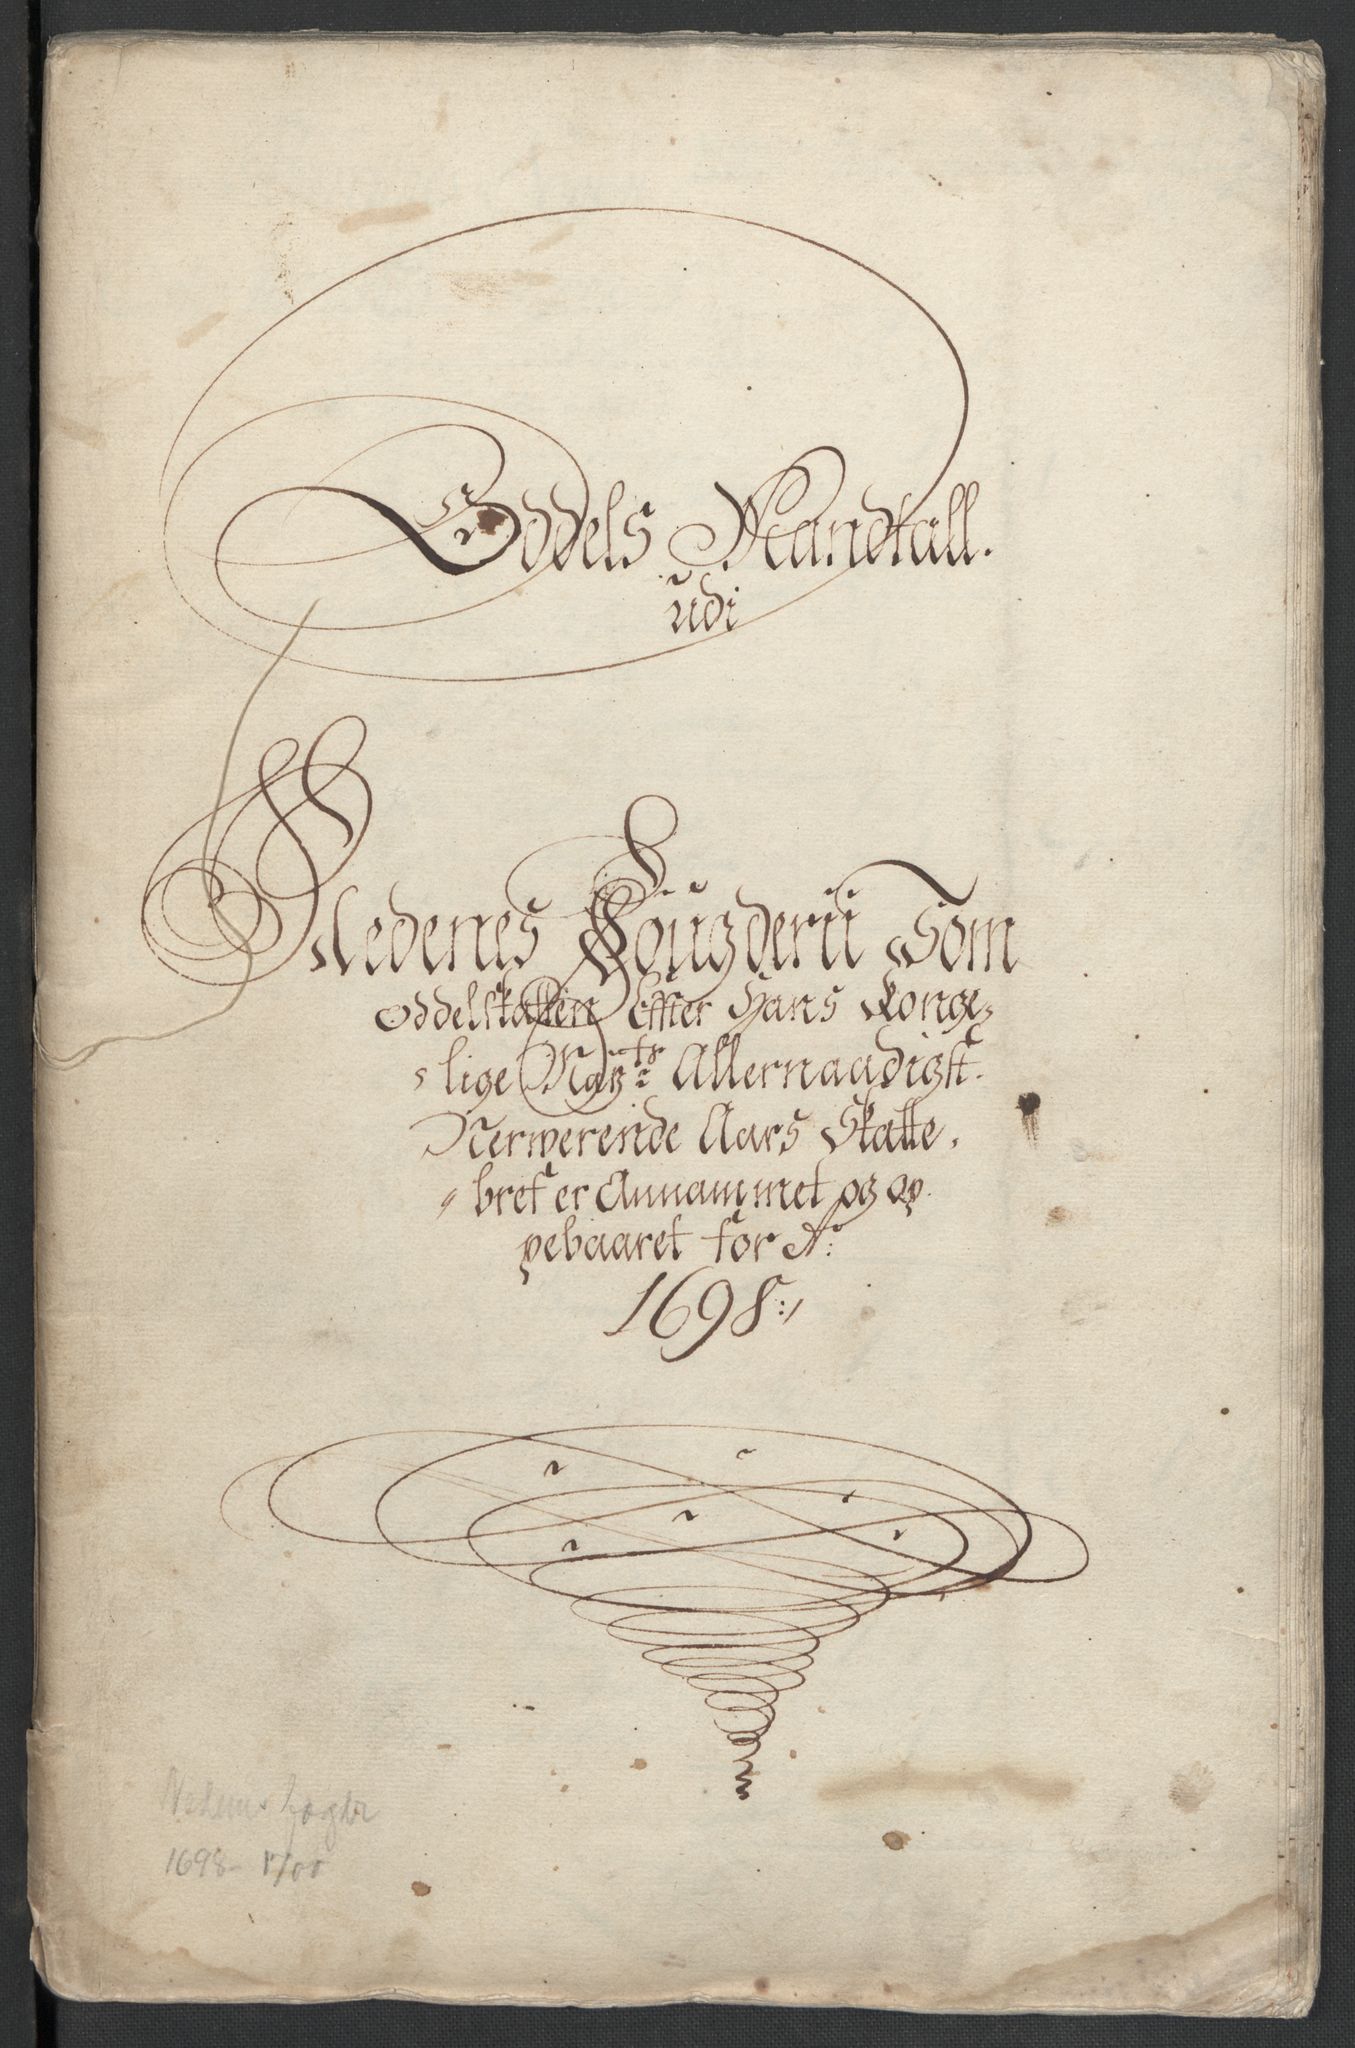 Oddels Mandtall.
udi
Nedenes Fougderii Som
Oddelskatten Effter Hans Konge-
lige May:ts Allernaadigst.
Nerwerende Aars Skatte.
bref er Annammet og op
pebaaret for A:
1698:/
Nedenes fogder
1698- 1700